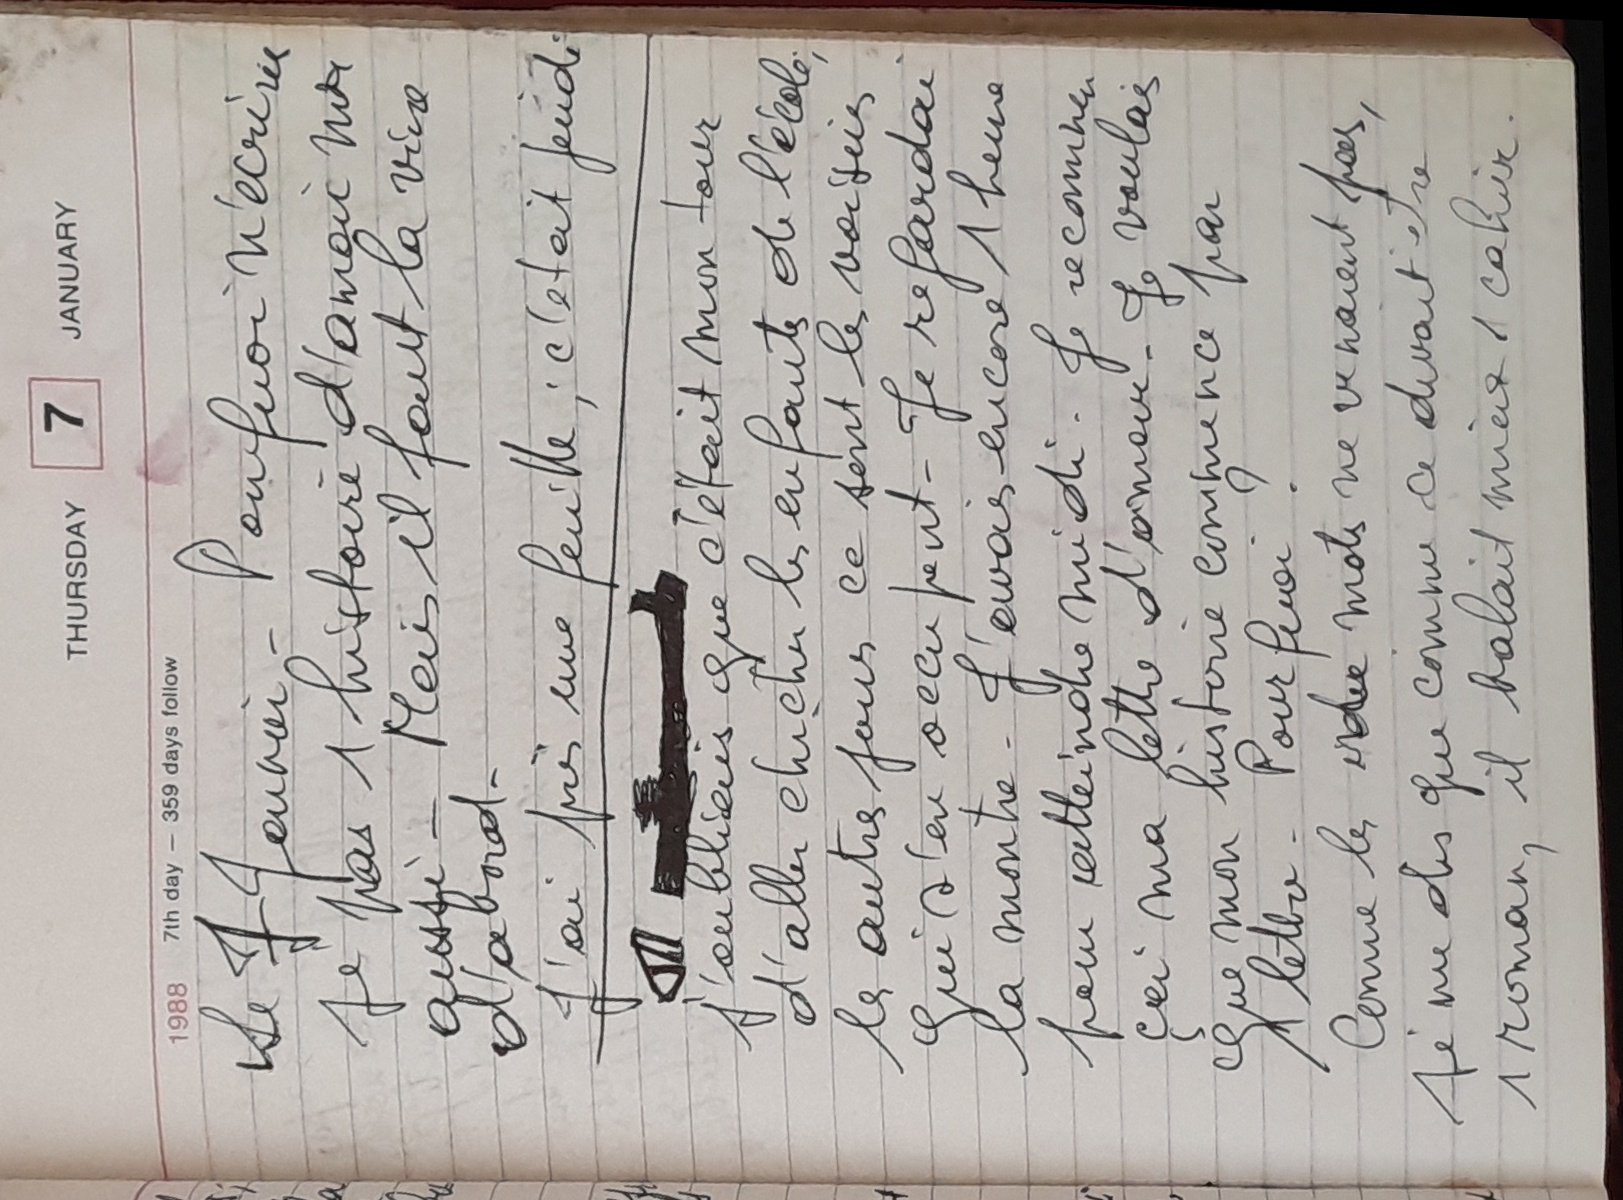 THURSDAY 7 JANUARY
1988 7th day – 359 days follow
Le 7 Jenvier - Pourquoi n'écrire
Je pas 1 histoire d'amoir ma
aussi - Meis il faut la vivre
d'abord -
J'ai pris une feuille, c'etait jeudi
J'oubliais que c'était mon tour
d'aller chercher les enfants de l'école,
les autres jours ce sont les voisins
qui s'en occupent - Je regardai
la montre - J'avais encore 1 heure
pour atteindre midi. Je recommen
çai ma lettre d'amour - Je voulais
que mon histoire commence par
1 lettre - Pourquoi ?
Comme les mots ne venaient pas,
Je me dis que comme ce devait etre
1 roman, il valait mieux 1 cahier.